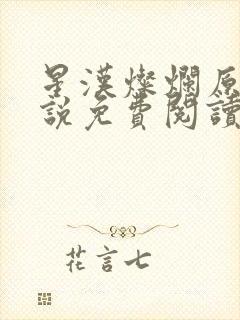 星漢燦爛原
說免費閱讀
花言七